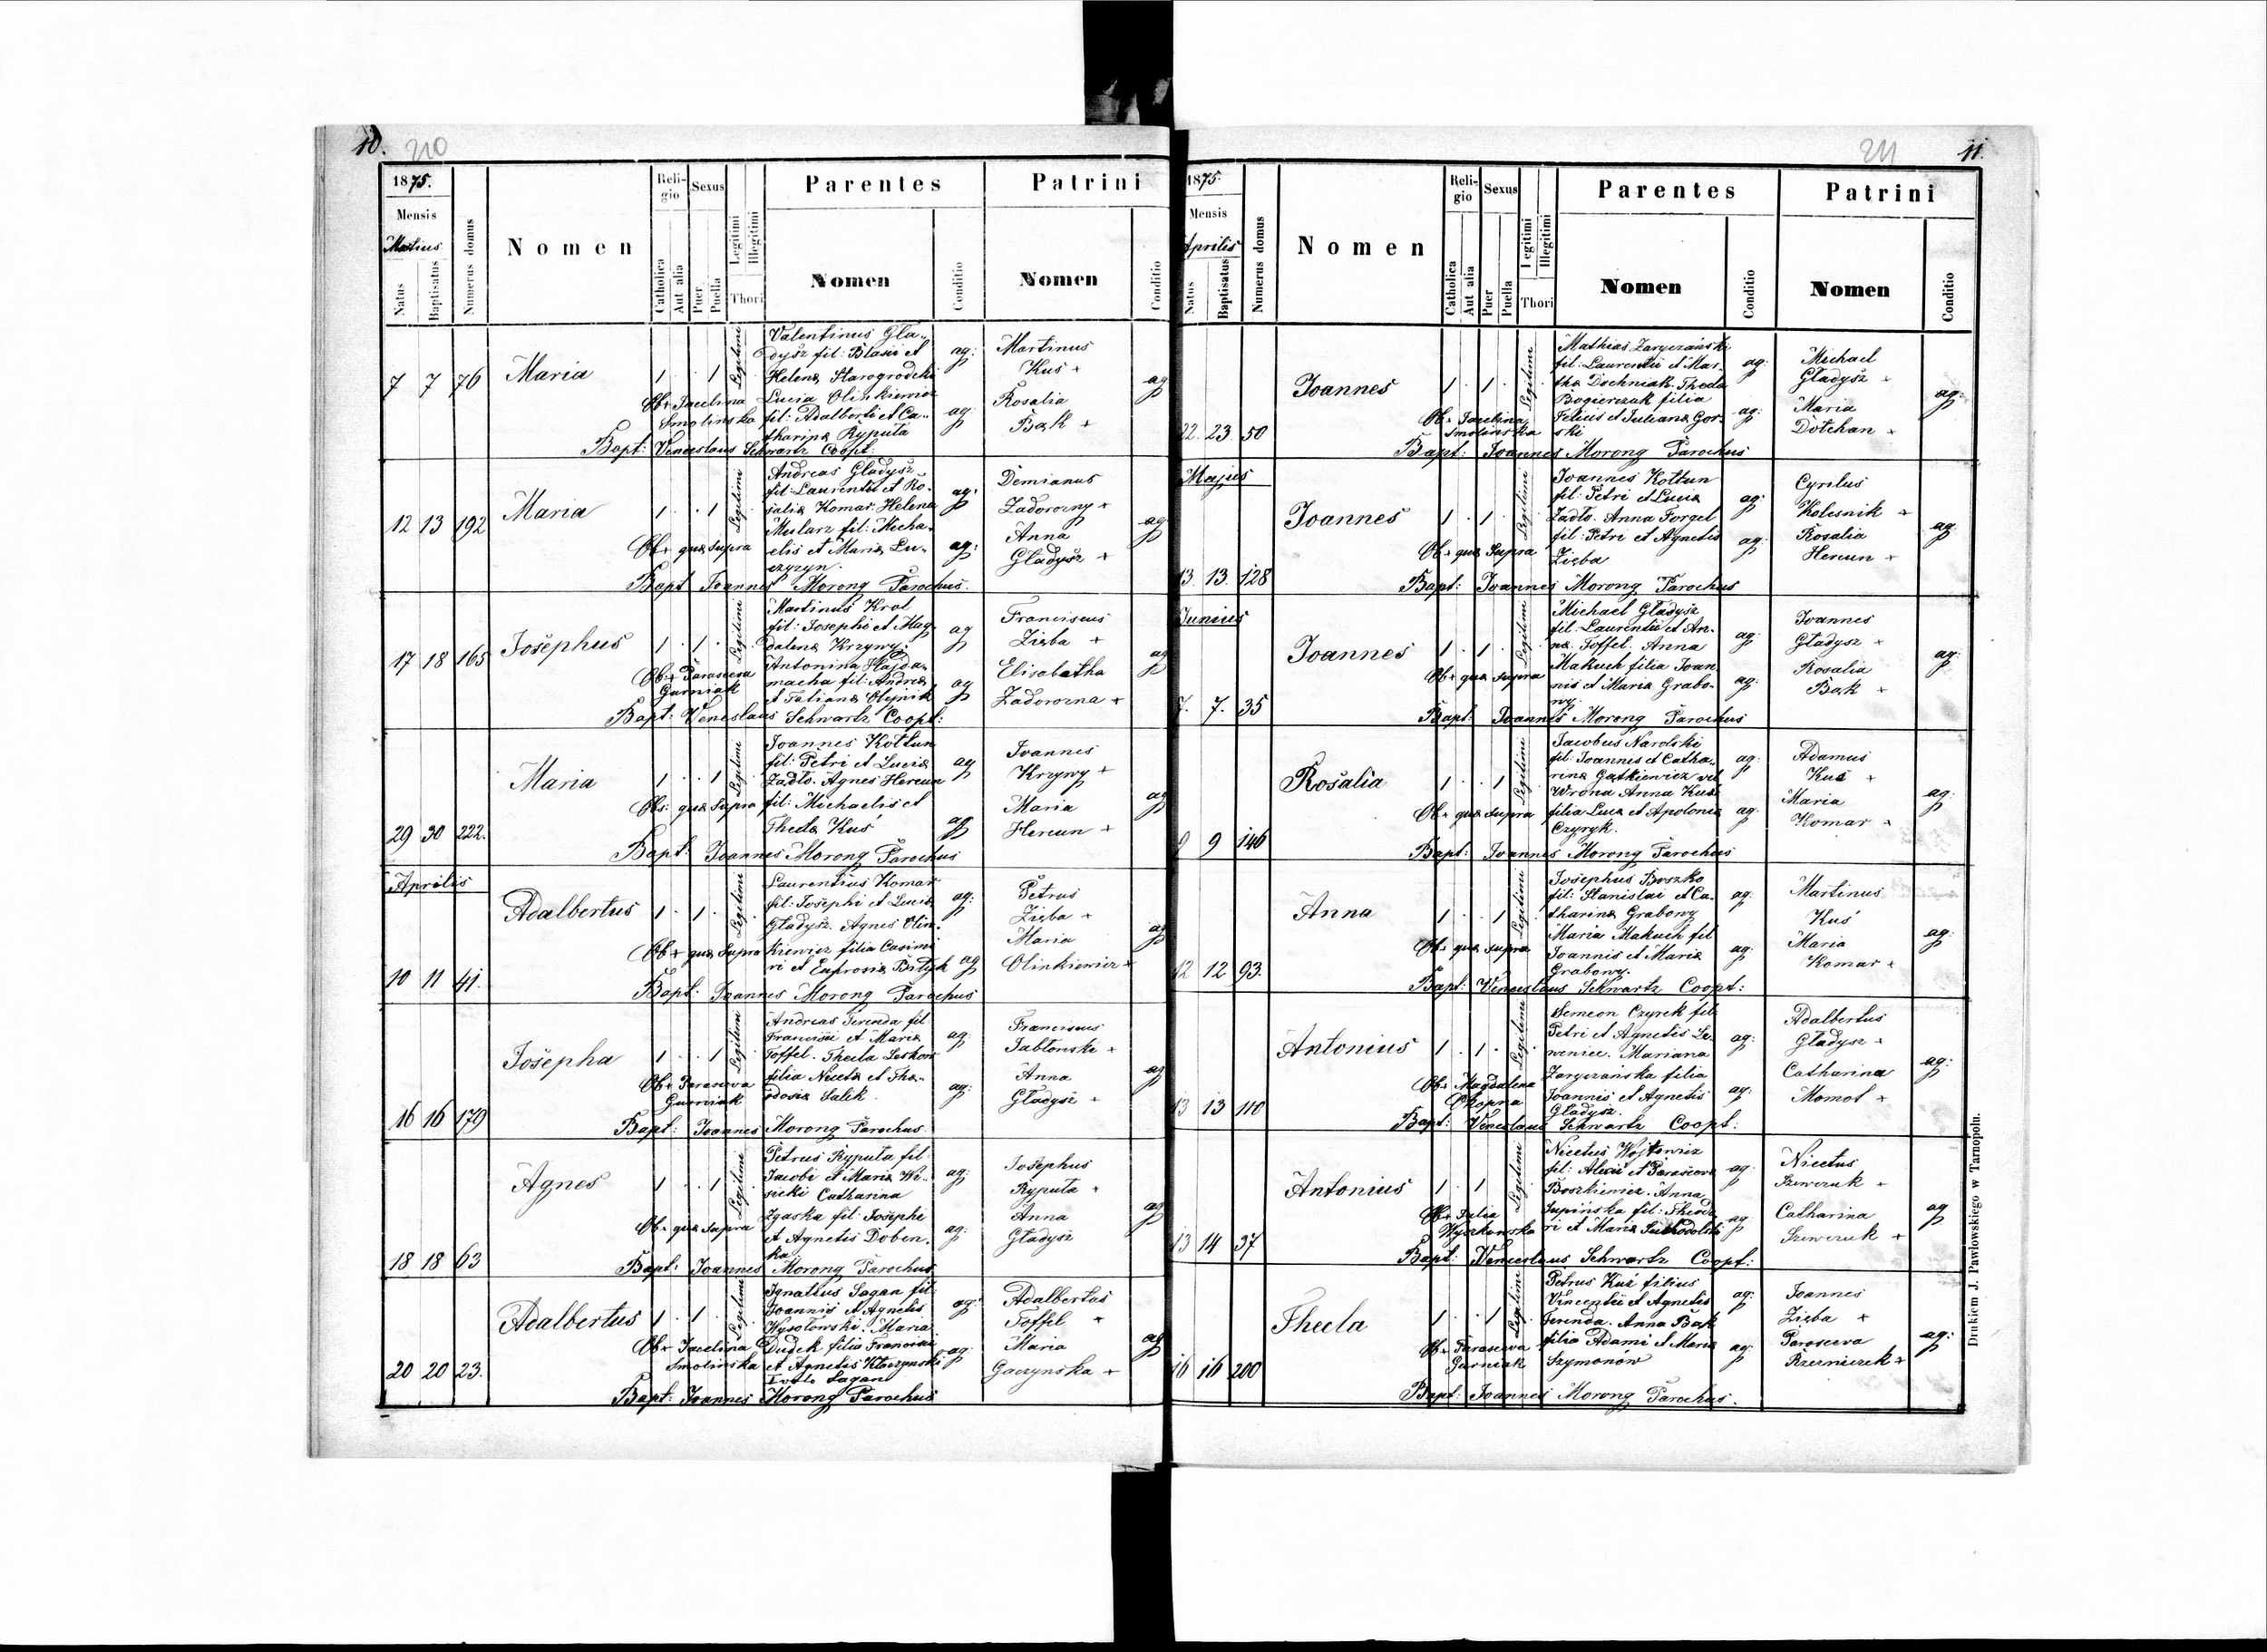 10. 210
1875.
Mensis
Martius
Natus
Baptisatus
Numerus domus
Nomen
Religio
Catholica
Aut alia
Sexus
Puer
Puella
Legitimi
Illegitimi
Thori
Parentes
Nomen
Conditio
Patrini
Nomen
Conditio
7 7 76 Maria 1 1 Legitimi
Valentinus Gla-
dysz fil: Blasii et
Helena Starogrodzki
Lucia Olinkiewicz
fil: Adalberti et Ca-
tharina Ryputa
ag: ag:
Martinus
Kus +
Rosalia
Bąk +
ag
Ob+ Jacelina
Smolinska
Bapt: Venceslaus Schwartz Coopt:
12 13 192 Maria 1 1 Legitimi
Andreas Gladysz
fil: Laurentii et Ro-
salia Komar. Helena
Mularz fil: Micha-
elis et Maria Lu-
czyzyn.
ag: ag:
Demianus
Zadorozny +
Anna
Gładysz +
ag
Ob+ qua supra
Bapt Joannes Morong Parochus.
17 18 165 Josephus 1 1 Legitimi
Martinus Krol
fil: Josephi et Mag-
dalena Krzywy.
Antonina Hajda-
macha fil: Andrea
et Tatiana Olejnik
ag ag
Franciscus
Zięba +
Elisabetha
Zadorozna +
ag
Ob+ Parasceva
Gurniak
Bapt: Venceslaus Schwartz Coopt:
29 30 222. Maria 1 1 Legitimi
Joannes Kołtun
fil: Petri et Lucia
Zadło. Agnes Hercun
fil: Michaelis et
Thecla Kuś
ag ag
Joannes
Krzywy +
Maria
Hercun +
ag
Obs: qua supra
Bapt: Joannes Morong Parochus
Aprilis
10 11 41. Adalbertus 1 1 Legitimi
Laurentius Komar
fil: Josephi et Lucia
Gladysz. Agnes Olin-
kiewicz filia Casimi-
ri et Euprosia
ag: ag
Petrus
Zięba +
Maria
Olinkiewicz +
ag
Ob+ qua supra
Bapt: Joannes Morong Parochus
16 16 179 Josepha 1 1 Legitimi
Andreas Ferenda fil:
Francisci et Maria
Toffel. Thecla Leskow
filia Niceta et Theo-
dosia Salik.
ag: ag:
Franciscus
Jabłonski +
Anna
Gładysz +
ag
Ob+ Parasceva
Gurniak
Bapt: Joannes Morong Parochus.
18 18 63 Agnes 1 1 Legitimi
Petrus Ryputa fil:
Jacobi et Maria Wi-
sicki Catharina
Zgaska fil: Josephi
et Agnetis Doben-
ka.
ag: ag:
Josephus
Ryputa +
Anna
Gładysz
ag
Ob+ qua supra
Bapt: Joannes Morong Parochus
20 20 23. Adalbertus 1 1 Legitimi
Ignatius Sagan fil:
Joannis et Agnetis
Wysotowski. Maria
Dudek filia Francisci
et Agnetis
Sagan
ag: ag:
Adalbertus
Toffel +
Maria
Gaczynska +
ag
Ob+ Jacelina
Smolinska
Bapt: Joannes Morong Parochus
211 11.
1875.
Mensis
Aprilis
Natus
Baptisatus
Numerus domus
Nomen
Religio
Catholica
Aut alia
Sexus
Puer
Puella
Legitimi
Illegitimi
Thori
Parentes
Nomen
Conditio
Patrini
Nomen
Conditio
22. 23 50 Joannes 1 1 Legitimi
Mathias Zaryczański
fil: Laurentii et Mar-
tha Dochniak. Thecla
Bogierczuk filia
Felicis et Juliana Gor-
ski
ag: ag:
Michael
Gładysz +
Maria
Dotchan +
ag:
Ob+ Jacelina
Smolinska
Bapt: Joannes Morong Parochus
Majus
13. 13. 128 Joannes 1 1 Legitimi
Joannes Kołtun
fil: Petri et Lucia
Zadło. Anna Forgel
fil: Petri et Agnetis
Zięba
ag: ag:
Cyrilus
Kolesnik +
Rosalia
Hercun +
ag:
Ob+ qua supra
Bapt: Joannes Morong Parochus
Junius
7. 7. 35 Joannes 1 1 Legitimi
Michael Gładysz
fil: Laurentii et An-
na Toffel. Anna
Makuch filia Joan-
nis et Maria Grabo-
wy.
ag: ag:
Joannes
Gładysz +
Rosalia
Bąk +
ag:
Ob+ qua supra
Bapt: Joannes Morong Parochus
9 9 146 Rosalia 1 1 Legitimi
Jacobus Narolski
fil: Joannis et Catha-
rina Gatkiewicz vel
Wrona Anna Kuś
filia Luca et Apolonia
Czyryk.
ag: ag:
Adamus
Kuś +
Maria
Komar +
ag:
Ob+ qua supra
Bapt: Joannes Morong Parochus
12 12 93. Anna 1 1 Legitimi
Josephus Boszko
fil: Stanislai et Ca-
tharina Grabowy
Maria Makuch fil
Joannis et Maria
Grabowy.
ag: ag:
Martinus
Kuś
Maria
Komar +
ag:
Ob+ qua supra
Bapt: Venceslaus Schwartz Coopt:
13 13 110 Antonius 1 1 Legitimi
Semeon Czyrek fil:
Petri et Agnetis Le-
weniec. Mariana
Zaryczańska filia
Joannis et Agnetis
Gladysz.
ag: ag:
Adalbertus
Gładysz +
Catharina
Momot +
ag:
Ob+ Magdalena
Chopna
Bapt: Venceslaus Schwartz Coopt:
13 14 37 Antonius 1 1 Legitimi
Nicetus Wojtowicz
fil: Alexii et Parasceva
Boszkiewicz. Anna
Supinska fil: Theodo-
ri et Maria Suchodolski
ag: ag
Nicetus
Szewczuk +
Catharina
Szewczuk +
ag
Ob+ Julia
Wyszkowska
Bapt: Venceslaus Schwartz Coopt:
16 16 200 Thecla 1 1 Legitimi
Petrus Kuś filius
Vincentii et Agnetis
Ferenda. Anna Bąk
filia Adami et Maria
Szymonów
ag: ag:
Joannes
Zięba +
Parasceva
Rzerniczek +
ag:
Ob+ Parasceva
Gurniak
Bapt: Joannes Morong Parochus.
Drukiem J. Pawłowskiego w Tarnopolu.